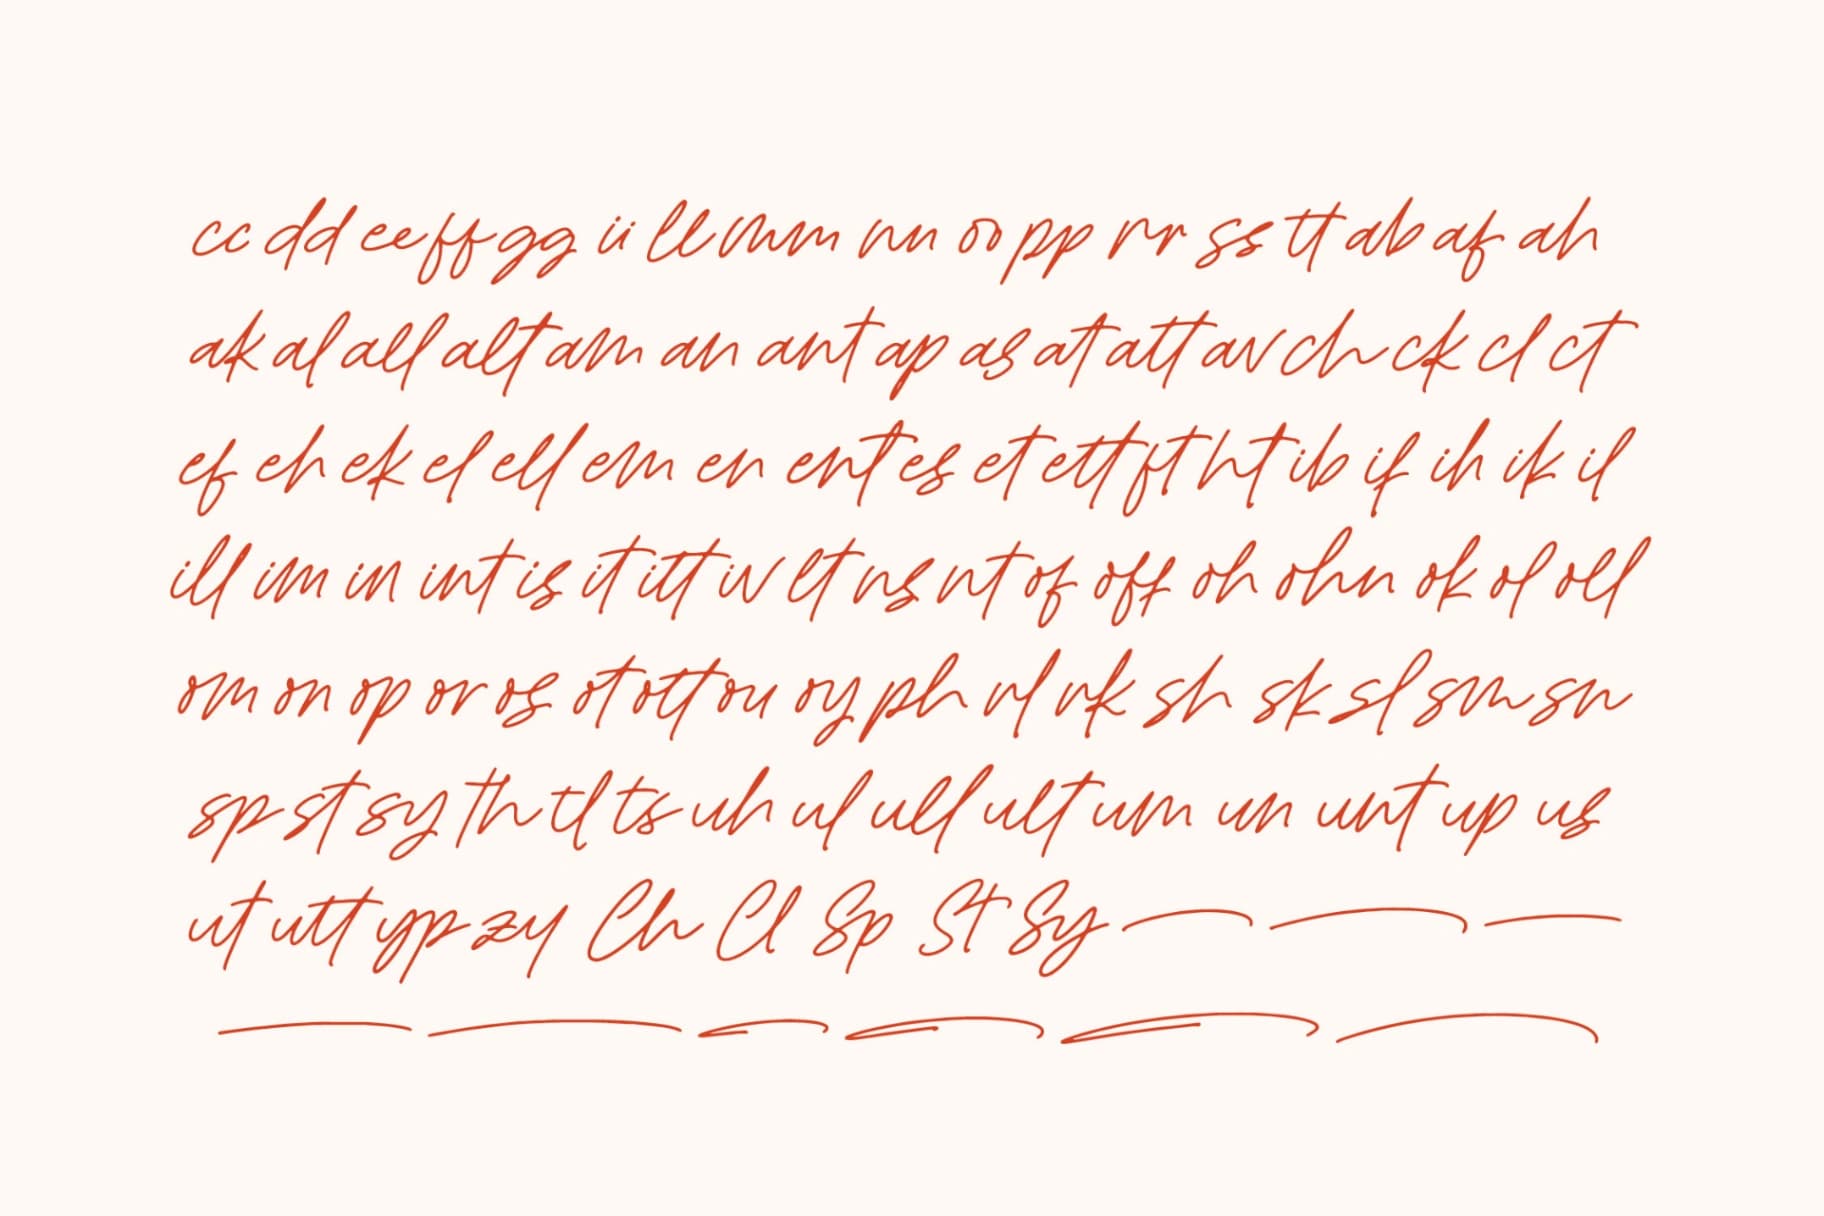 cc dd ee ff gg ii ll mm nn oo pp rr ss tt ab af ah
ak al all alt am an ant ap as at att av ch ck cl ct
ef eh ek el ell em en ent es et ett ft ht ib if ih ik il
ill im in int is it itt iv lt ns nt of off oh ohn ok ol oll
om on op or os ot ott ou oy ph rl rk sh sk sl sm sn
sp st sy th tl ts uh ul ull ult um un unt up us
ut utt yp zy Ch Cl Sp St Sy